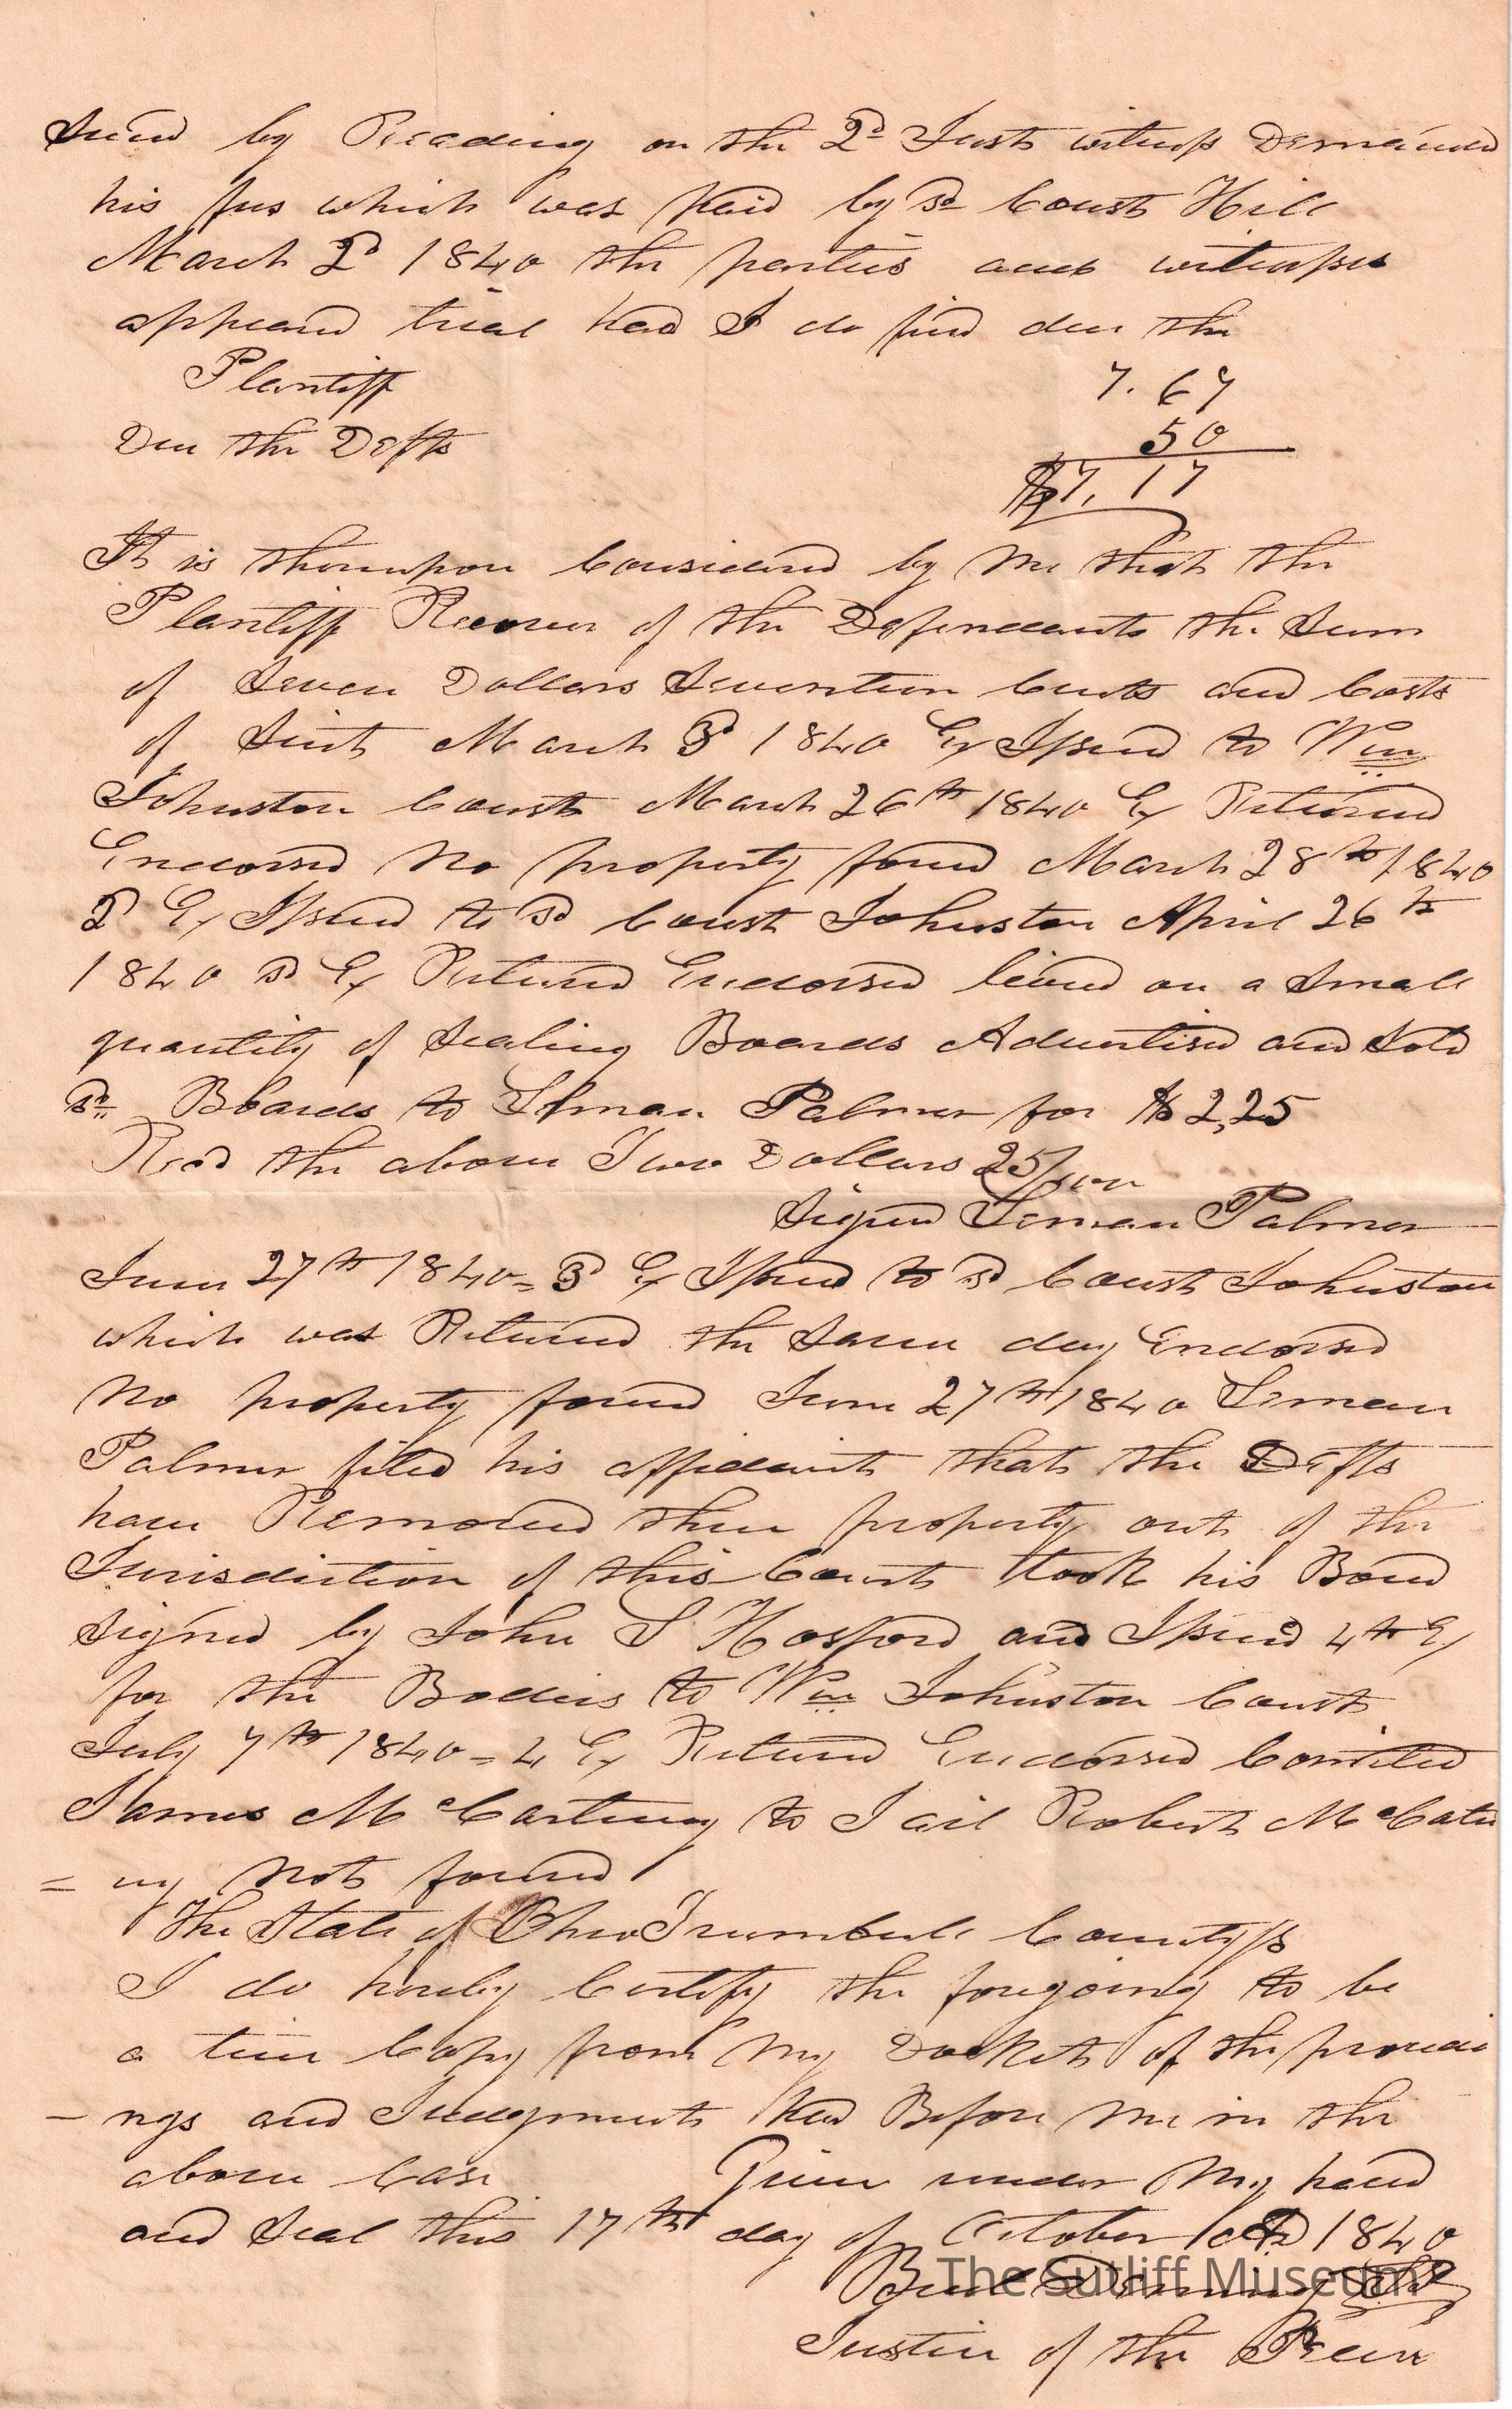 Served by Reading on the 2d Inst witness Demanded
his fees which was paid by sd Const Hill
March 2d 1840 the parties and witnesses
appeared trial had I do find due the
Plantiff 7.67
Due the Defts 50
$7.17
It is thereupon Considered by me that the
Plantiff Recover of the Defendants the Sum
of Seven Dollars Seventeen Cents and Costs
of Suit March 3d 1840 Ex Issued to Wm
Johnston Const March 26th 1840 Ex Returned
Endorsed No property found March 28th 1840
2d Ex Issued to sd Const Johnston April 26th
1840 sd Ex Returned Endorsed levied on a Small
quantity of Sealing Boards Advertised and Sold
sd Boards to Leman Palmer for $2,25
Recd the above Two Dollars 25/100
Signed Leman Palmer
June 27th 1840 = 3d Ex Issued to sd Const Johnston
which was Returned the Same day Endorsed
No property found June 27th 1840 Leman
Palmer filed his affidavit that the Defts
have Removed their property out of the
Jurisdiction of this Court took his Bond
Signed by John S Hosford and Issued 4th Ex
for the Bodies to Wm Johnston Const
July 7th 1840 = 4 Ex Returnd Endorsed Comited
James McCartney to Jail Robert McCatn
= ey Not found
The State of Ohio Trumbull County ss
I do hereby Certify the foregoing to be
a true Copy from my Docket of the proceedi
- ngs and Judgments had Before me in the
above Case Given under My hand
and Seal this 17th day of October AD 1840
The Sutliff Museum
Justice of the Peace